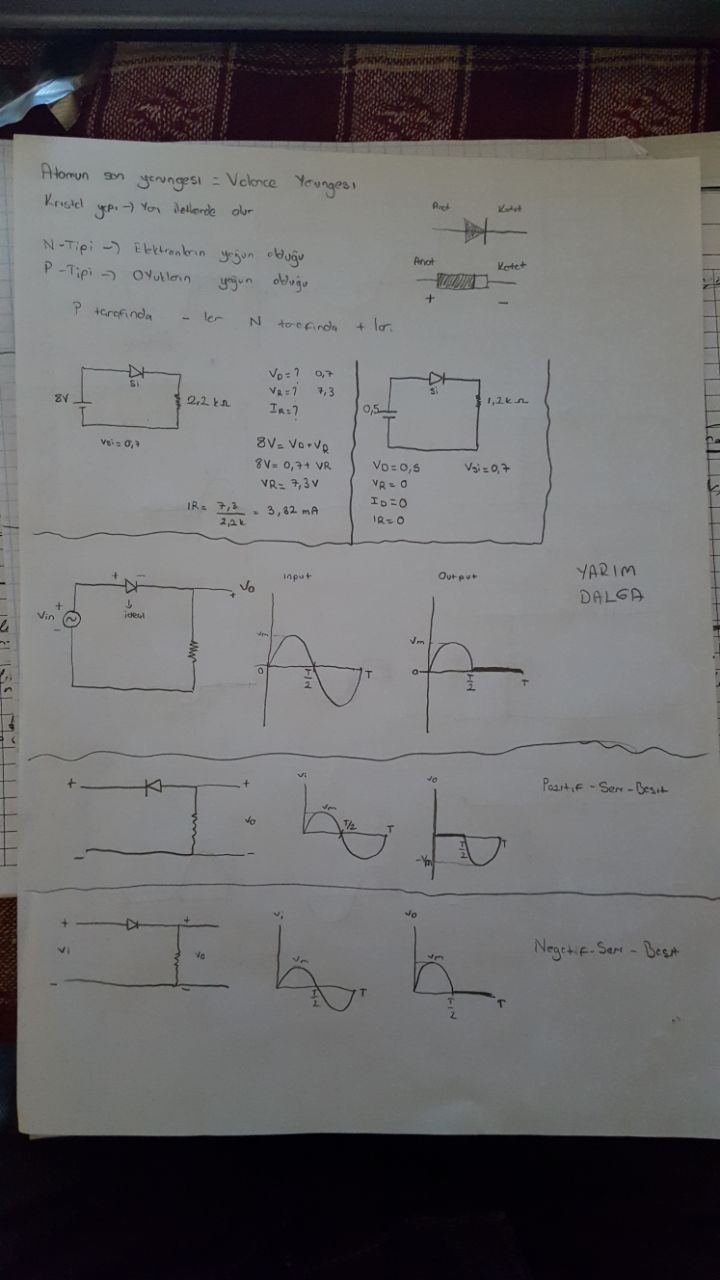 Atomun son yörüngesi = Valance Yörüngesi
Kristal yapı → Yarı iletkende olur
N-Tipi → Elektronların yoğun olduğu
P-Tipi → Oyukların yoğun olduğu
P tarafında - ler N tarafında + lar.
Anot Katot
Anot Katot
+ -
8V
Si
2,2 kΩ
VSi = 0,7
VD = ? 0,7
VR = ? 7,3
IR = ?
8V = VD + VR
8V = 0,7 + VR
VR = 7,3 V
IR = 7,3 / 2,2k = 3,32 mA
0,5
Si
1,2 kΩ
VD = 0,5 VSi = 0,7
VR = 0
ID = 0
IR = 0
Vin + -
+ -
ideal
+ Vo
input
Vm
0 T/2 T
Output
Vm
0 T/2 T
YARIM
DALGA
+ +
Vo
- -
Vi
Vm T/2 T
Vo
-Vm T/2 T
Pozitif - Seri - Basit
+ +
Vi Vo
- -
Vi
Vm
T/2 T
Vo
Vm
T/2 T
Negatif - Seri - Basit